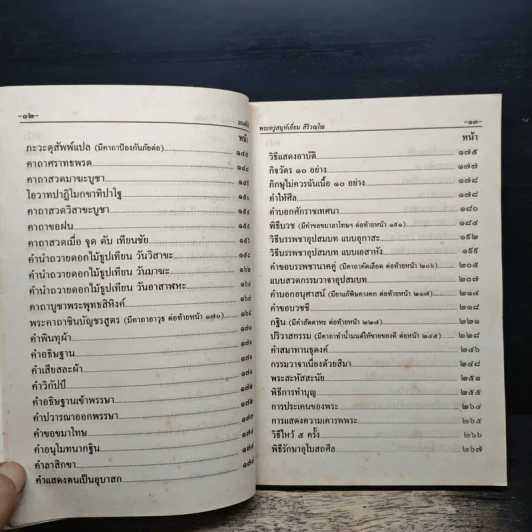 -๑๒-
หน้า
ภะวะตุสัพพ์แปล (มีคาถาป้องกันภัยต่อ)
คาถาศราทธพรต
คาถาสวดมาฆะบูชา
โอวาทปาฏิโมกขาทิปาโฐ
คาถาสวดวิสาขะบูชา
คาถาขอฝน
คาถาสวดเมื่อ จุด ดับ เทียนชัย
คำนำถวายดอกไม้ธูปเทียน วันวิสาขะ
คำนำถวายดอกไม้ธูปเทียน วันมาฆะ
คำนำถวายดอกไม้ธูปเทียน วันอาสาฬหะ
คาถาบูชาพระพุทธสิหิงค์
พระคาถาชินบัญชรสูตร (มีคาถาอาวุธ ต่อท้ายหน้า ๑๗๐)
คำพินทุผ้า
คำอธิษฐาน
คำเสียสละผ้า
คำวิกัปป์
คำอธิษฐานเข้าพรรษา
คำปวารณาออกพรรษา
คำขอขมาโทษ
คำอนุโมทนากฐิน
คำลาสิกขา
คำแสดงตนเป็นอุบาสก
พระครูสมุห์เอี่ยม สิริวณฺโณ
-๑๓-
หน้า
วิธีแสดงอาบัติ ๑๗๕
กิจวัตร ๑๐ อย่าง ๑๗๗
ภิกษุไม่ควรฉันเนื้อ ๑๐ อย่าง ๑๗๘
คำให้ศีล ๑๗๘
คำบอกศักราชเทศนา ๑๘๐
พิธีบวช (มีคำขอขมาลาโทษฯ ต่อท้ายหน้า ๑๙๑) ๑๘๔
วิธีบรรพชาอุปสมบท แบบอุกาสะ ๑๙๒
วิธีบรรพชาอุปสมบท แบบเอสาหัง ๑๙๘
คำขอบรรพชานาคคู่ (มีคาถาคัดเลือด ต่อท้ายหน้า ๒๐๖) ๒๐๕
แบบสวดกรรมวาจาอุปสมบท ๒๐๗
คำบอกอนุศาสน์ (มียาแก้พิษคางคก ต่อท้ายหน้า ๒๑๗) ๒๑๔
คำขอบวชชี ๒๑๘
กฐิน (มีคำสัตตาหะ ต่อท้ายหน้า ๒๒๗) ๒๒๑
ปริวาสกรรม (มีคาถาทำน้ำมนต์ให้ขายของดี ต่อท้ายหน้า ๒๔๕) ๒๒๘
คำสมาทานธุดงค์ ๒๔๖
กรรมวาจาเนื่องด้วยสีมา ๒๔๘
พระสะหัสสะนัย ๒๕๑
พิธีการทำบุญ ๒๕๕
การประเคนของพระ ๒๖๔
การแสดงความเคารพพระ ๒๖๕
วิธีไหว้ ๕ ครั้ง ๒๖๖
พิธีรักษาอุโบสถศีล ๒๖๗